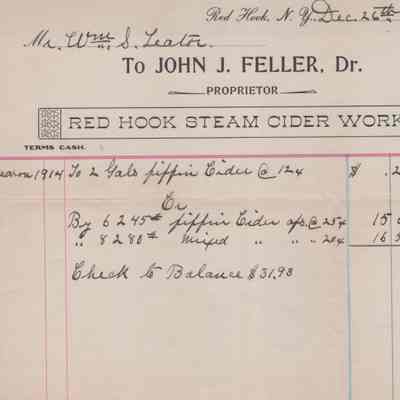 Red Hook, N. Y. Dec. 26th
Mr. Wm. S. Teator.
To JOHN J. FELLER, Dr.
PROPRIETOR
RED HOOK STEAM CIDER WORK
TERMS CASH.
1914 To 2 Gals pippin Cider @ 12¢ $ .2
Cr
By 6245# pippin Cider aps. @ 25¢ 15
" 8280# Mixed " " " 20¢ 16
Check to Balance $31.93